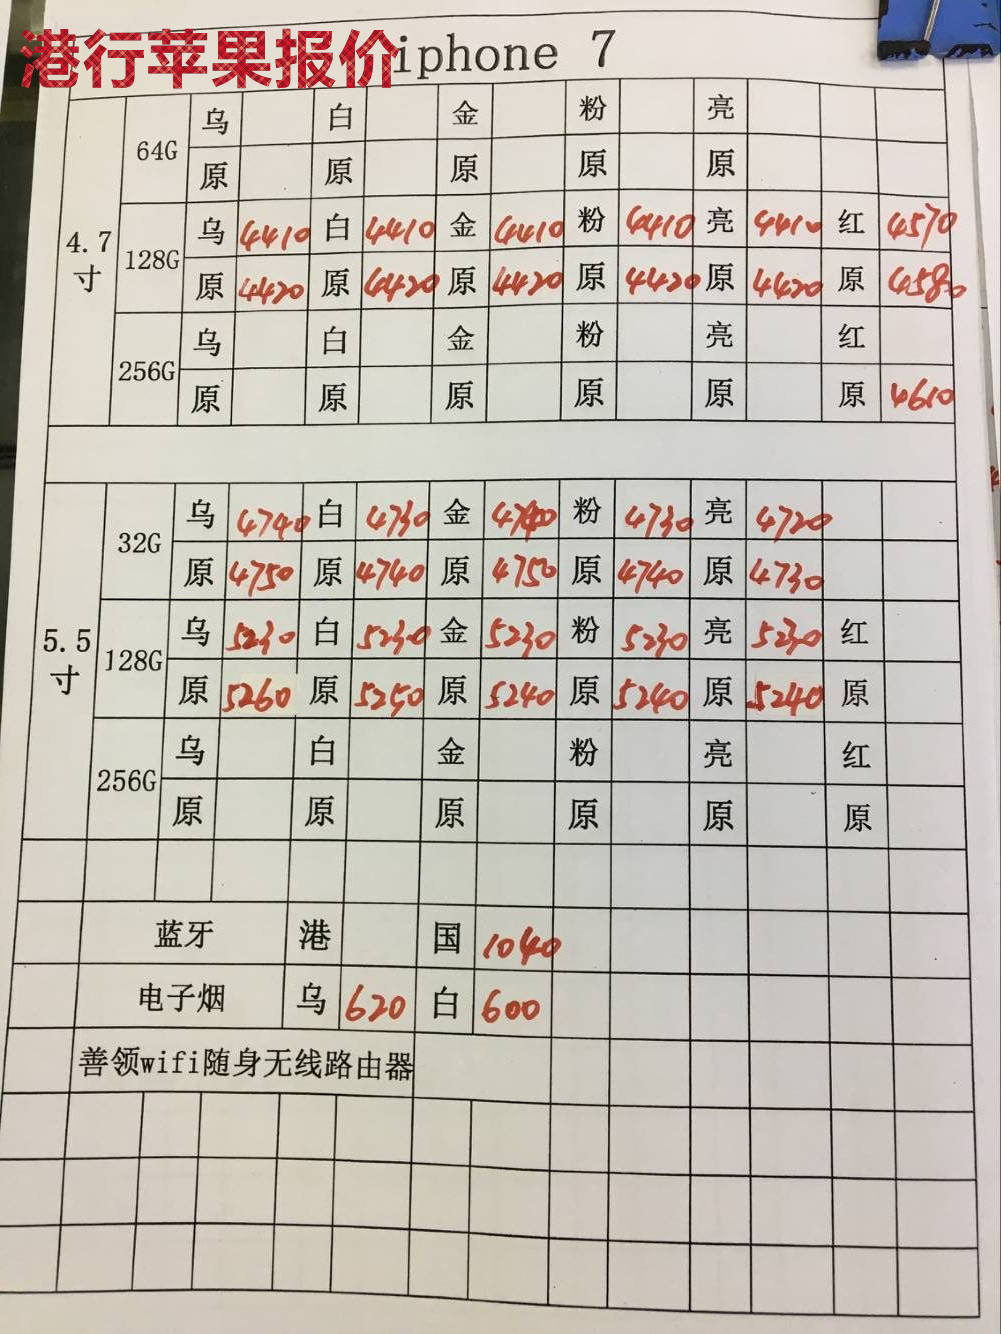 港行苹果报价
iphone 7
4.7寸
64G 乌 白 金 粉 亮
原 原 原 原 原
128G 乌 4410 白 4410 金 4410 粉 4410 亮 4410 红 4570
原 4420 原 4420 原 4420 原 4420 原 4420 原 4580
256G 乌 白 金 粉 亮 红
原 原 原 原 原 原 4610
5.5寸
32G 乌 4740 白 4730 金 粉 4730 亮 4720
原 4750 原 4740 原 4750 原 4740 原 4730
128G 乌 5230 白 5230 金 5230 粉 5230 亮 5230 红
原 5260 原 5250 原 5240 原 5240 原 5240 原
256G 乌 白 金 粉 亮 红
原 原 原 原 原 原
蓝牙 港 国 1040
电子烟 乌 620 白 600
善领wifi随身无线路由器